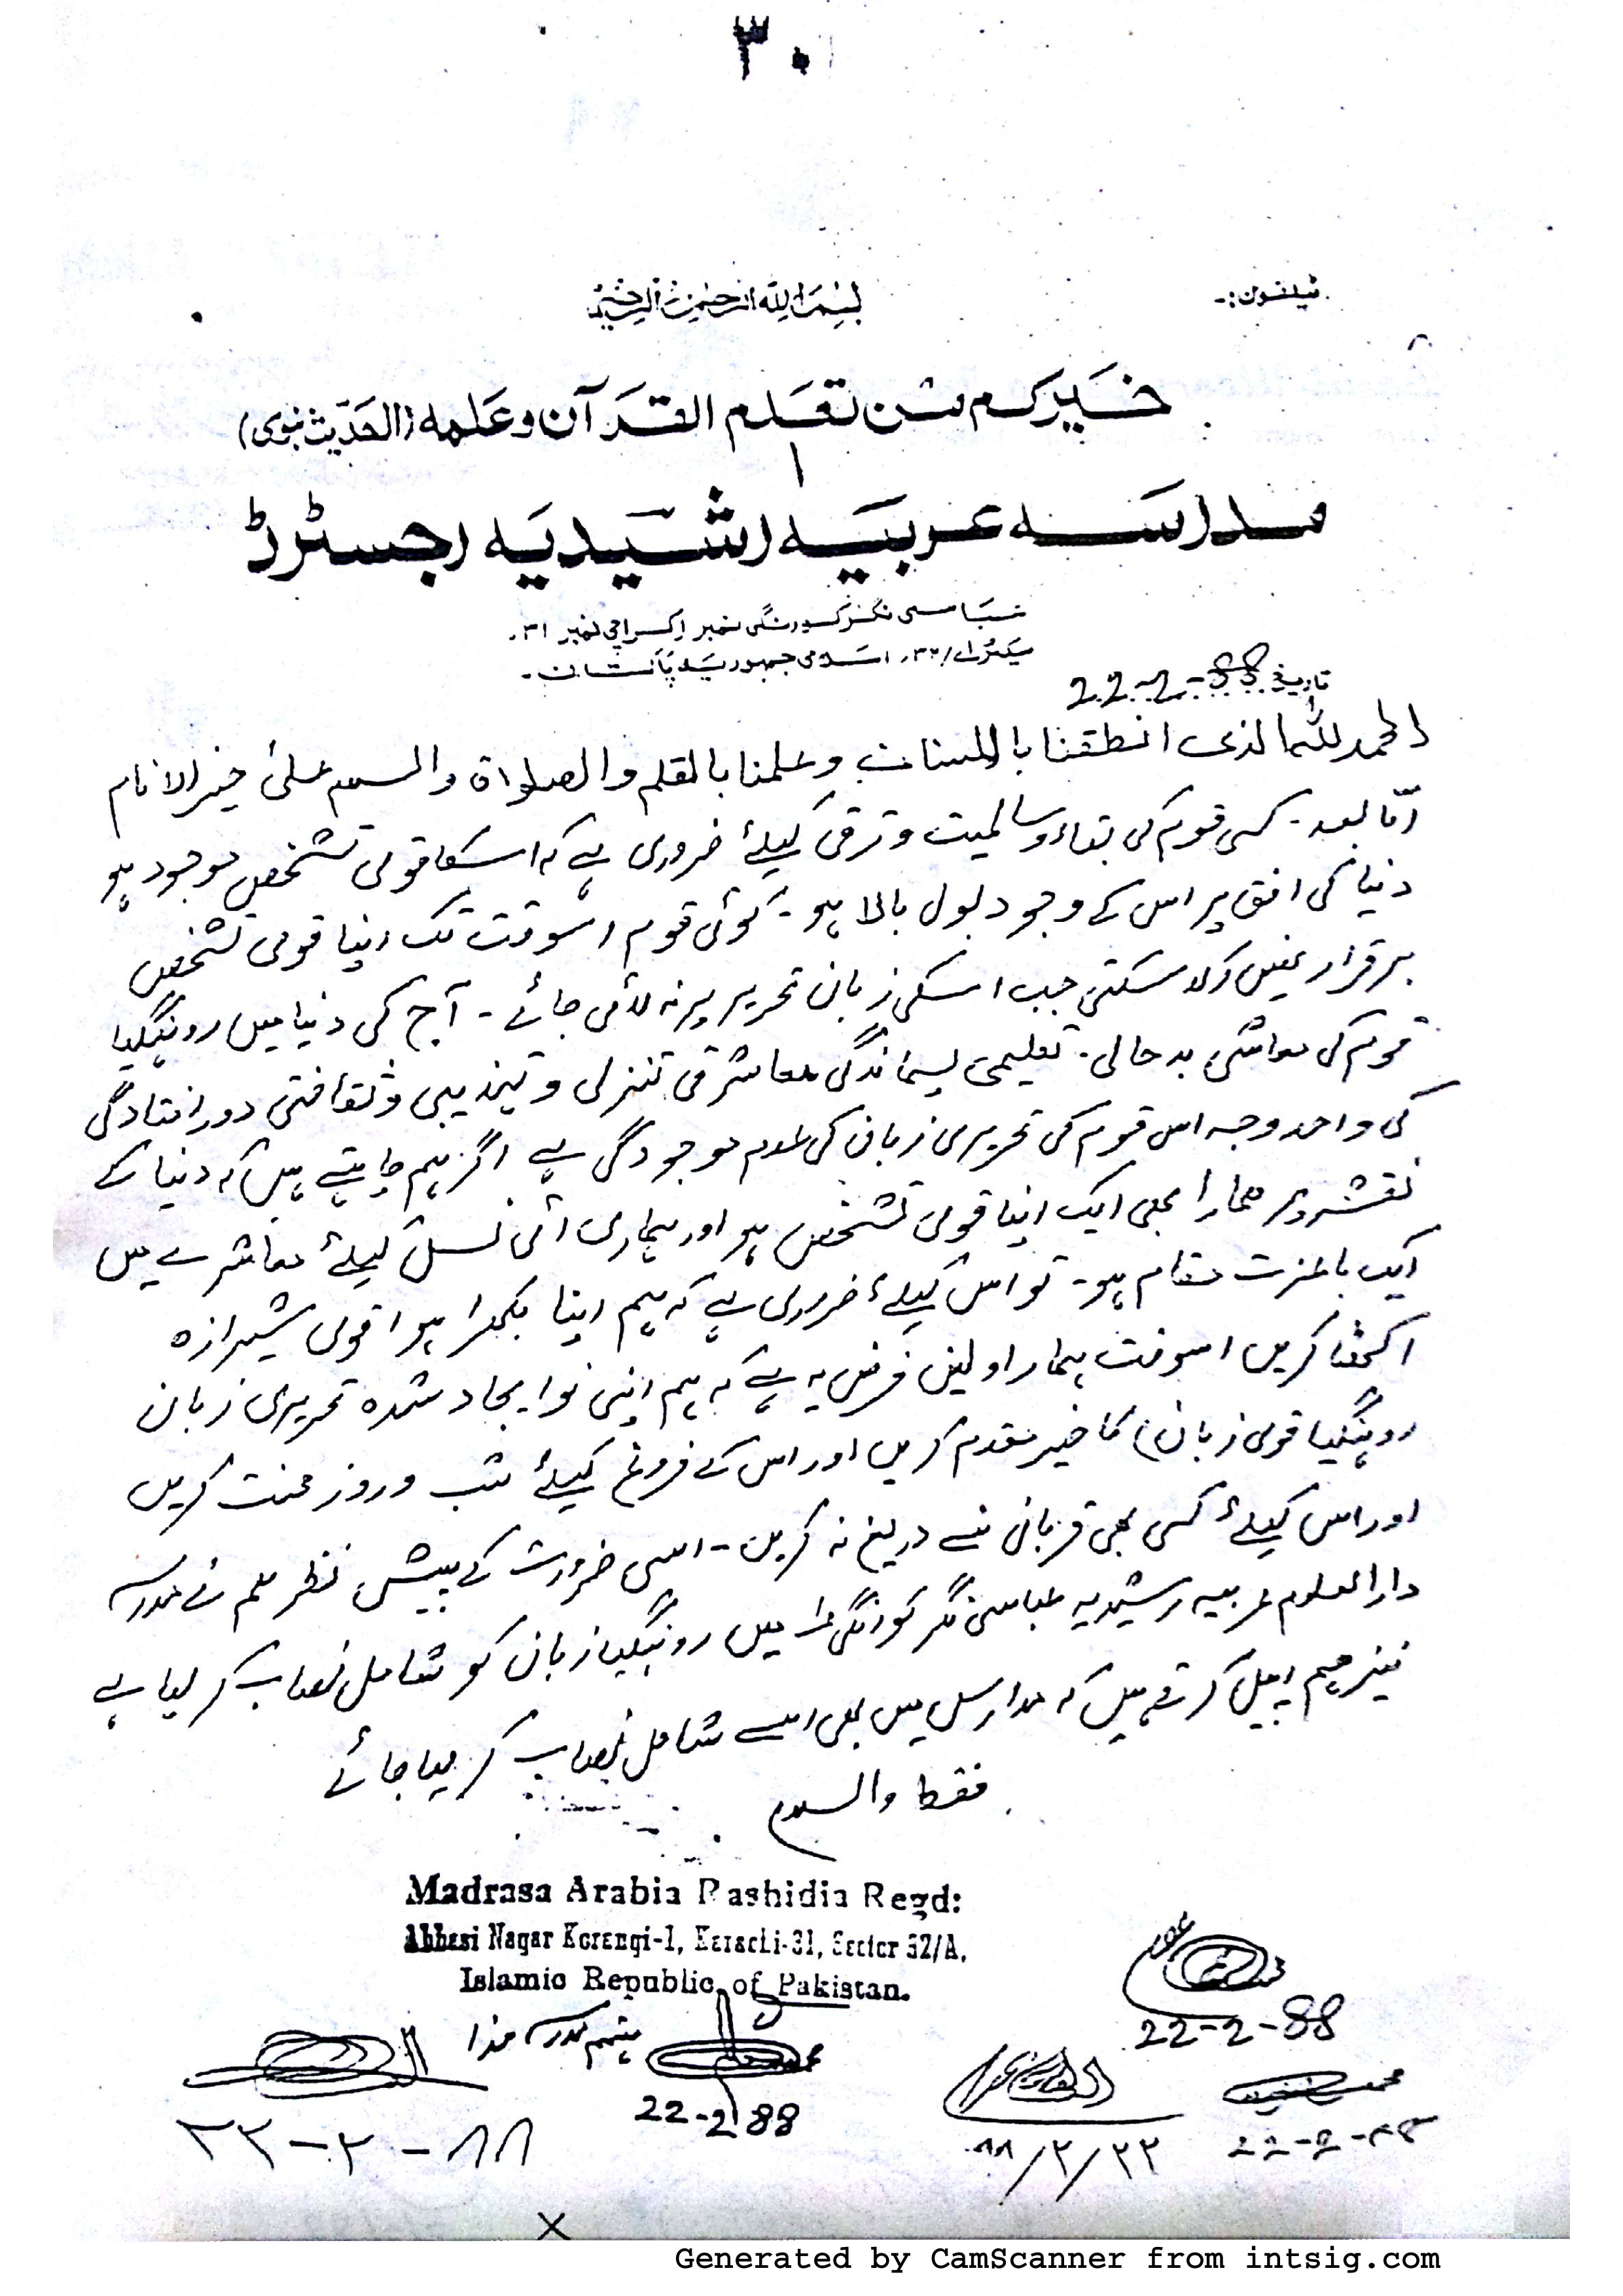 ٣٠
بسم الله الرحمن الرحيم
ٹیلفون:-
خيركم من تعلم القرآن وعلمه (الحديث نبوی)
مدرسه عربیه رشیدیه رجسٹرڈ
عباسی نگر کورنگی نمبر ۱ کراچی نمبر ۳۱.
سیکٹر اے/۳۲. اسلامی جمہوریہ پاکستان.
تاریخ 22-2-88
الحمد للہ الذی انطقنا باللسان وعلمنا بالقلم والصلواۃ والسلام علیٰ خیر الانام
امّا بعد - کسی قوم کی بقاء و سالمیت و ترقی کیلئے ضروری ہے کہ اسکا قومی تشخص موجود ہو
دنیا کی افق پر اس کے وجود بول بالا ہو - کوئی قوم اسوقت تک اپنا قومی تشخص
برقرار نہیں رکھ سکتی جب اسکی زبان تحریر پر نہ لائی جائے - آج کی دنیا میں روہنگیا
قوم کی معاشی بدحالی - تعلیمی پسماندگی معاشرتی تنزلی و تہذیبی و ثقافتی دور افتادگی
کی واحد وجہ اس قوم کی تحریری زبان کی عدم موجودگی ہے اگر ہم چاہتے ہیں کہ دنیا کے
نقشہ پر ھمارا بھی ایک اپنا قومی تشخص ہو اور ہماری آئی نسل کیلئے معاشرے میں
ایک باعزت مقام ہو - تو اس کیلئے ضروری ہے کہ ہم اپنا بکھرا ہوا قومی شیرازہ
اکھٹا کریں اسوقت ہمارا اولین فرض یہ ہے کہ ہم اپنی نو ایجاد شدہ تحریری زبان
روہنگیا قومی زبان) کا خیر مقدم کریں اور اس کے فروغ کیلئے شب و روز محنت کریں
اور اس کیلئے کسی بھی قربانی سے دریغ نہ کریں - اسی ضرورت کے پیش نظر ہم نے مدرسہ
دارالعلوم عربیہ رشیدیہ عباسی نگر کورنگی ۱ میں روہنگیا زبان کو شامل نصاب کر لیا ہے
نیز ہم اپیل کرتے ہیں کہ مدارس میں بھی اسے شامل نصاب کر لیا جائے
فقط والسلام
Madrasa Arabia Rashidia Regd:
Abbasi Nagar Korengi-1, Karachi-31, Sector 32/A.
Islamic Republic of Pakistan.
22-2-88
مہتمم مدرسہ ھذا
22-2-88
٢٢-٢-٨٨
٨٨/٢/٢٢
22-2-88
X
Generated by CamScanner from intsig.com